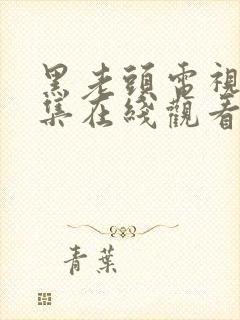 黑老頭電視
集在綫觀看
青葉